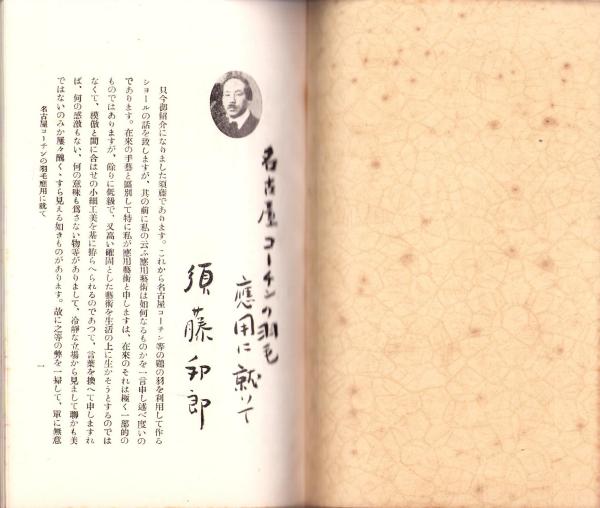 名古屋コーチンの羽毛
應用に就いて
須藤卯郎
只今御紹介になりました須藤であります。これから名古屋コーチン等の鷄の羽を利用して作る
ショールの話を致しますが、其の前に私の云ふ應用藝術は如何なるものかを一言申し述べ度いの
であります。在來の手藝と區別して特に私が應用藝術と申しますは、在來のそれは極く一部的の
ものではありますが、餘りに低級で、又高い確固とした藝術を生活の上に生かそうとするのでは
なくて、模倣と間に合はせの小細工美を基に拵らへられるのであつて、言葉を換へて申しますれ
ば、何の感激もない、何の意味も爲さない物等がありまして、冷靜な立場から見まして聊かも美
ではないのみか屢々醜く、すら見える如きものがあります。故に之等の弊を一掃して、單に無意
名古屋コーチンの羽毛應用に就て
一